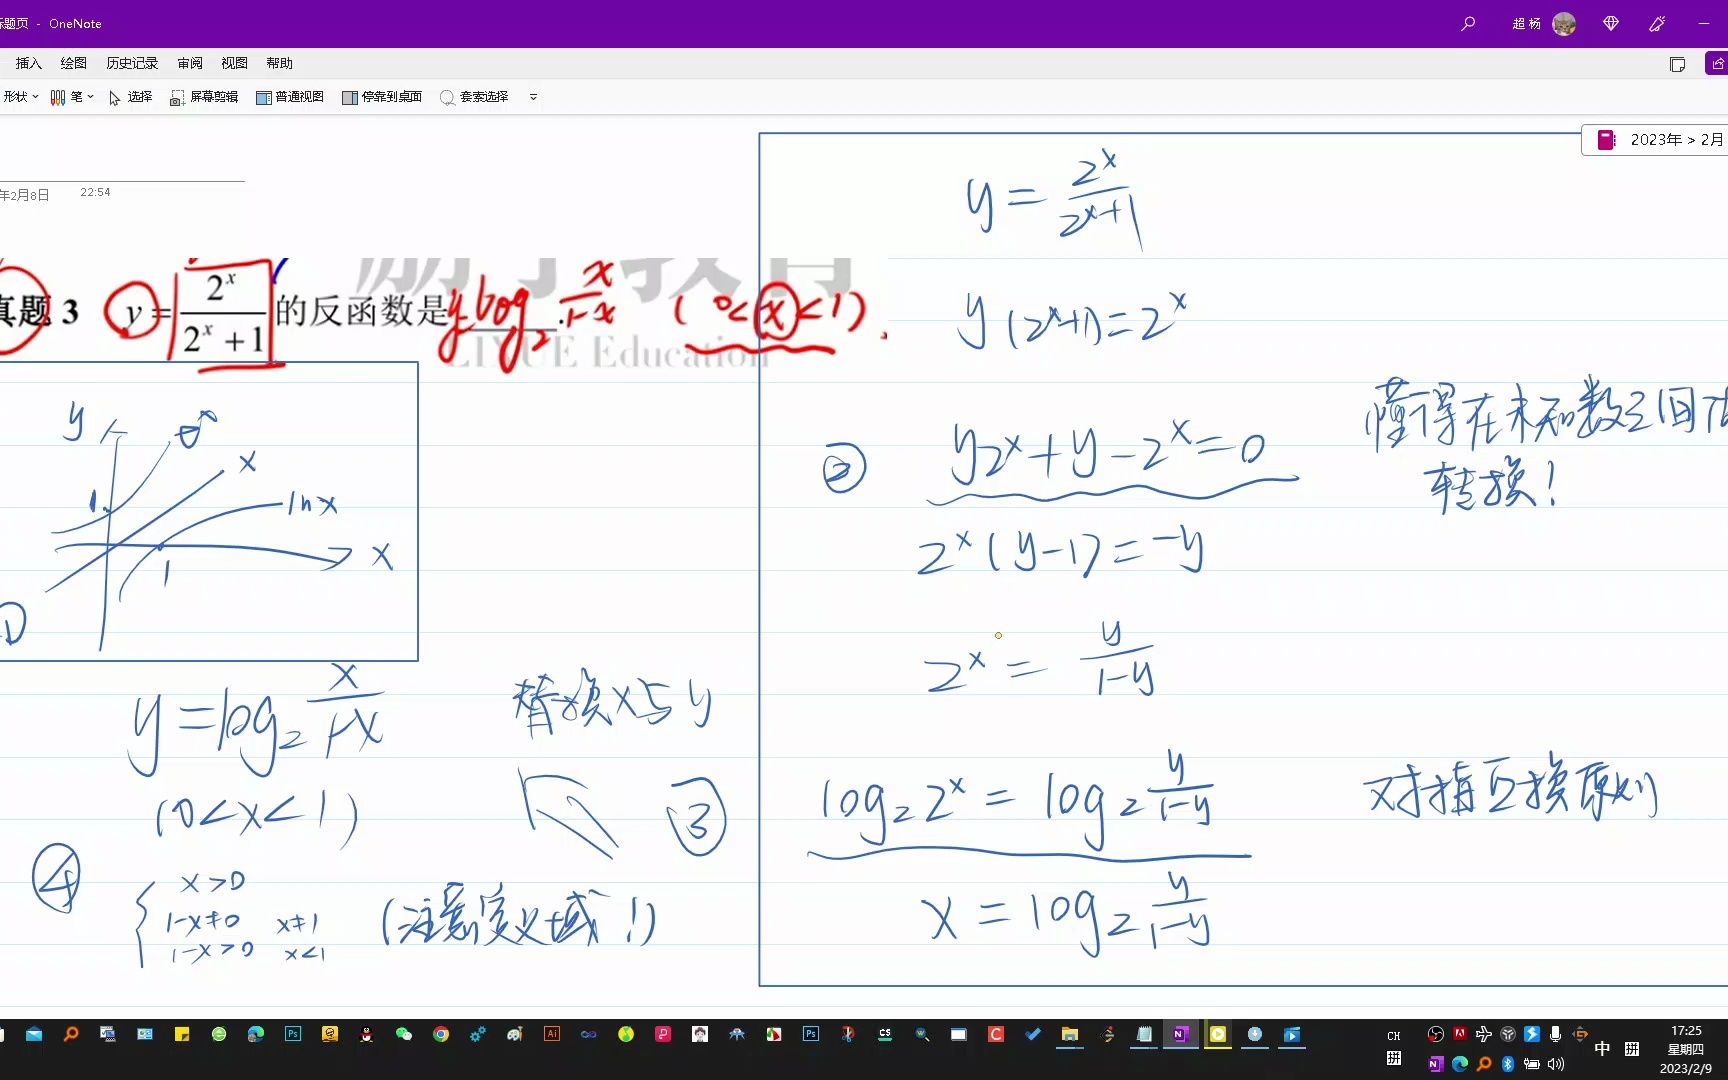 标题页 - OneNote
超 杨
插入 绘图 历史记录 审阅 视图 帮助
形状 笔 选择 屏幕剪辑 普通视图 停靠到桌面 套索选择
2023年 > 2月
年2月8日 22:54
真题 3 y = 2^x / (2^x + 1) 的反函数是 y log₂ x/(1-x) (0<x<1).
LIYUE Education
y
x
ln x
1
x
1
①
y = log₂ x/(1-x)
(0<x<1)
替换x与y
③
④
x>0
1-x≠0 x≠1
1-x>0 x<1
(注意定义域!)
y = 2^x / (2^x+1)
y(2^x+1) = 2^x
② y2^x + y - 2^x = 0
2^x(y-1) = -y
2^x = y/(1-y)
log₂2^x = log₂ y/(1-y)
x = log₂ y/(1-y)
懂得在未知数之间
转换!
对指互换原则
CH
中
17:25
星期四
2023/2/9